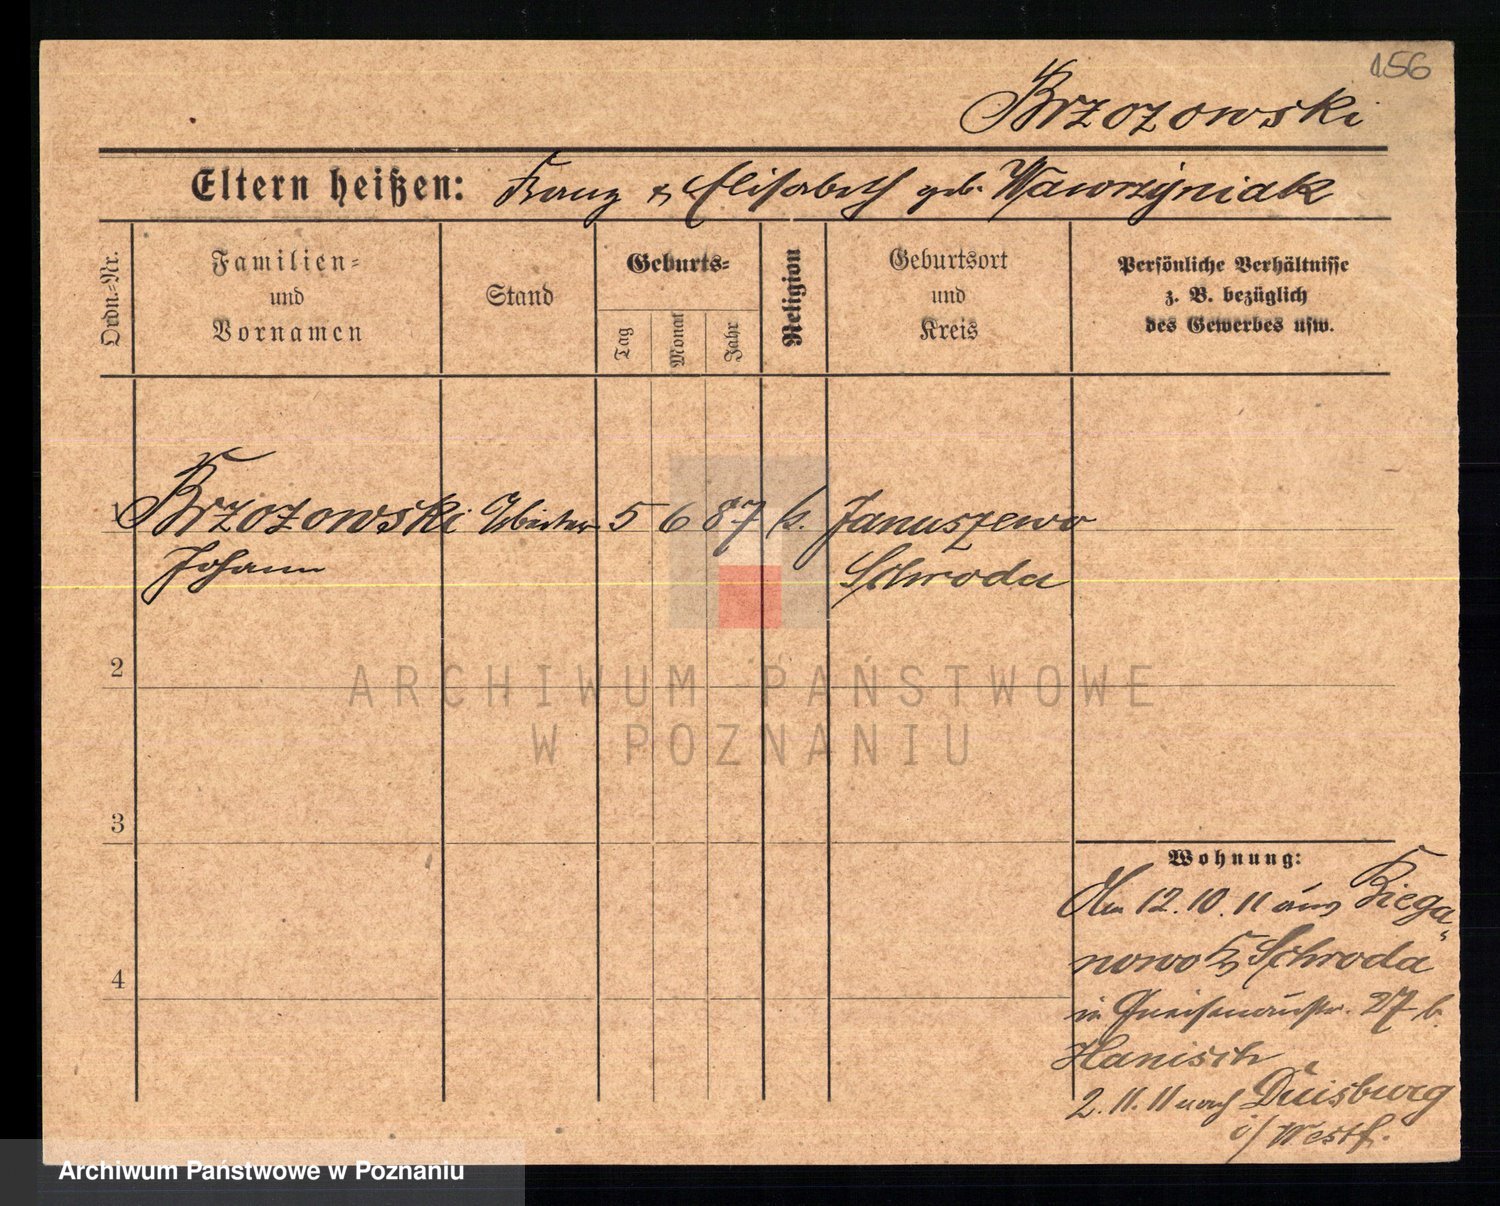 156
Brzozowski
Eltern heißen: Franz & Elisabeth geb. Wawrzyniak
Ordn.=Nr.
Familien=
und
Vornamen
Stand
Geburts=
Tag
Monat
Jahr
Religion
Geburtsort
und
Kreis
Persönliche Verhältnisse
z. B. bezüglich
des Gewerbes usw.
1 Brzozowski Arbeiter 5 6 87 k. Januszewo
Johann Schroda
2
3
4
Wohnung:
Am 12.10.11 aus Biega=
nowo Kr Schroda
in Gneisenaustr. 27 b.
Hanisch
2.11.11 nach Duisburg
i/Westf.
ARCHIWUM PAŃSTWOWE
W POZNANIU
Archiwum Państwowe w Poznaniu